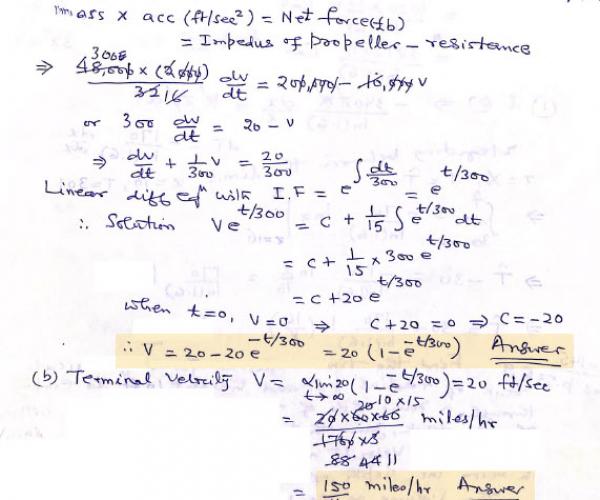 mass x acc (ft/sec²) = Net force (lb)
= Impedus of propeller - resistance
3000
⇒ 48,000 x (2000) / 32 16 dv/dt = 200,000 - 10,000 v
or 300 dv/dt = 20 - v
⇒ dv/dt + 1/300 v = 20/300
Linear diff eqⁿ with I.F = e^∫dt/300 = e^t/300
∴ Solution ve^t/300 = c + 1/15 ∫ e^t/300 dt
= c + 1/15 x 300 e^t/300
= c + 20 e^t/300
when t=0, v=0 ⇒ c + 20 = 0 ⇒ c = -20
∴ v = 20 - 20 e^-t/300 = 20 (1 - e^-t/300) Answer
(b) Terminal Velocity V = lim t→∞ 20 (1 - e^-t/300) = 20 ft/sec
20 10 x 15
= 20 x 60 x 60 / 1760 x 3 miles/hr
88 44 11
= 150 miles/hr Answer